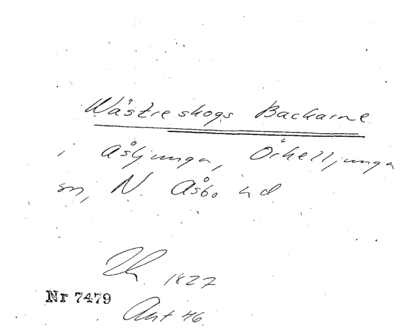 Wästreskogs Backarne
i Åsljunga, Örkelljunga
sn, N. Åsbo hd.
1827
Nr 7479
Akt 46.